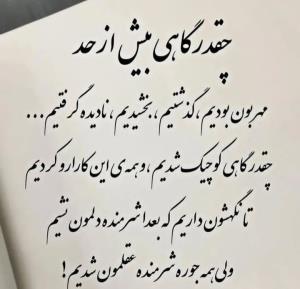 چقدر گاهی بیش از حد
مهربون بودیم، گذشتیم، بخشیدیم، نادیده گرفتیم...
چقدر گاهی کوچیک شدیم، و همه‌ی این کارارو کردیم
تا نگهشون داریم که بعدا شرمنده دلمون نشیم
ولی همه جوره شرمنده عقلمون شدیم!